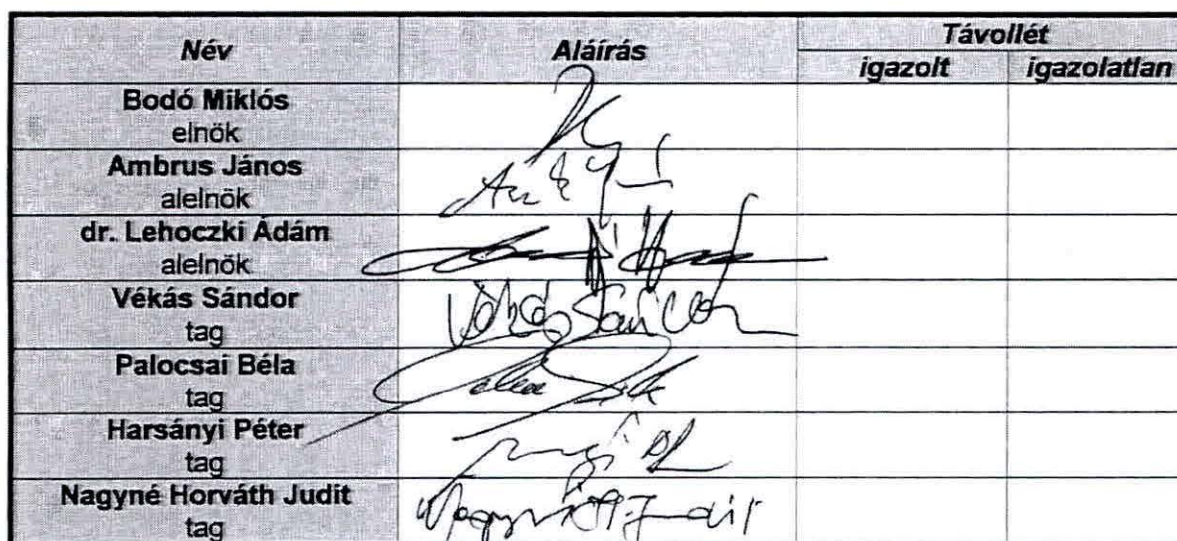 Név Aláírás Távollét
igazolt igazolatlan
Bodó Miklós
elnök
Ambrus János
alelnök
dr. Lehoczki Ádám
alelnök
Vékás Sándor
tag
Vékás Sándor
Palocsai Béla
tag
Harsányi Péter
tag
Nagyné Horváth Judit
tag